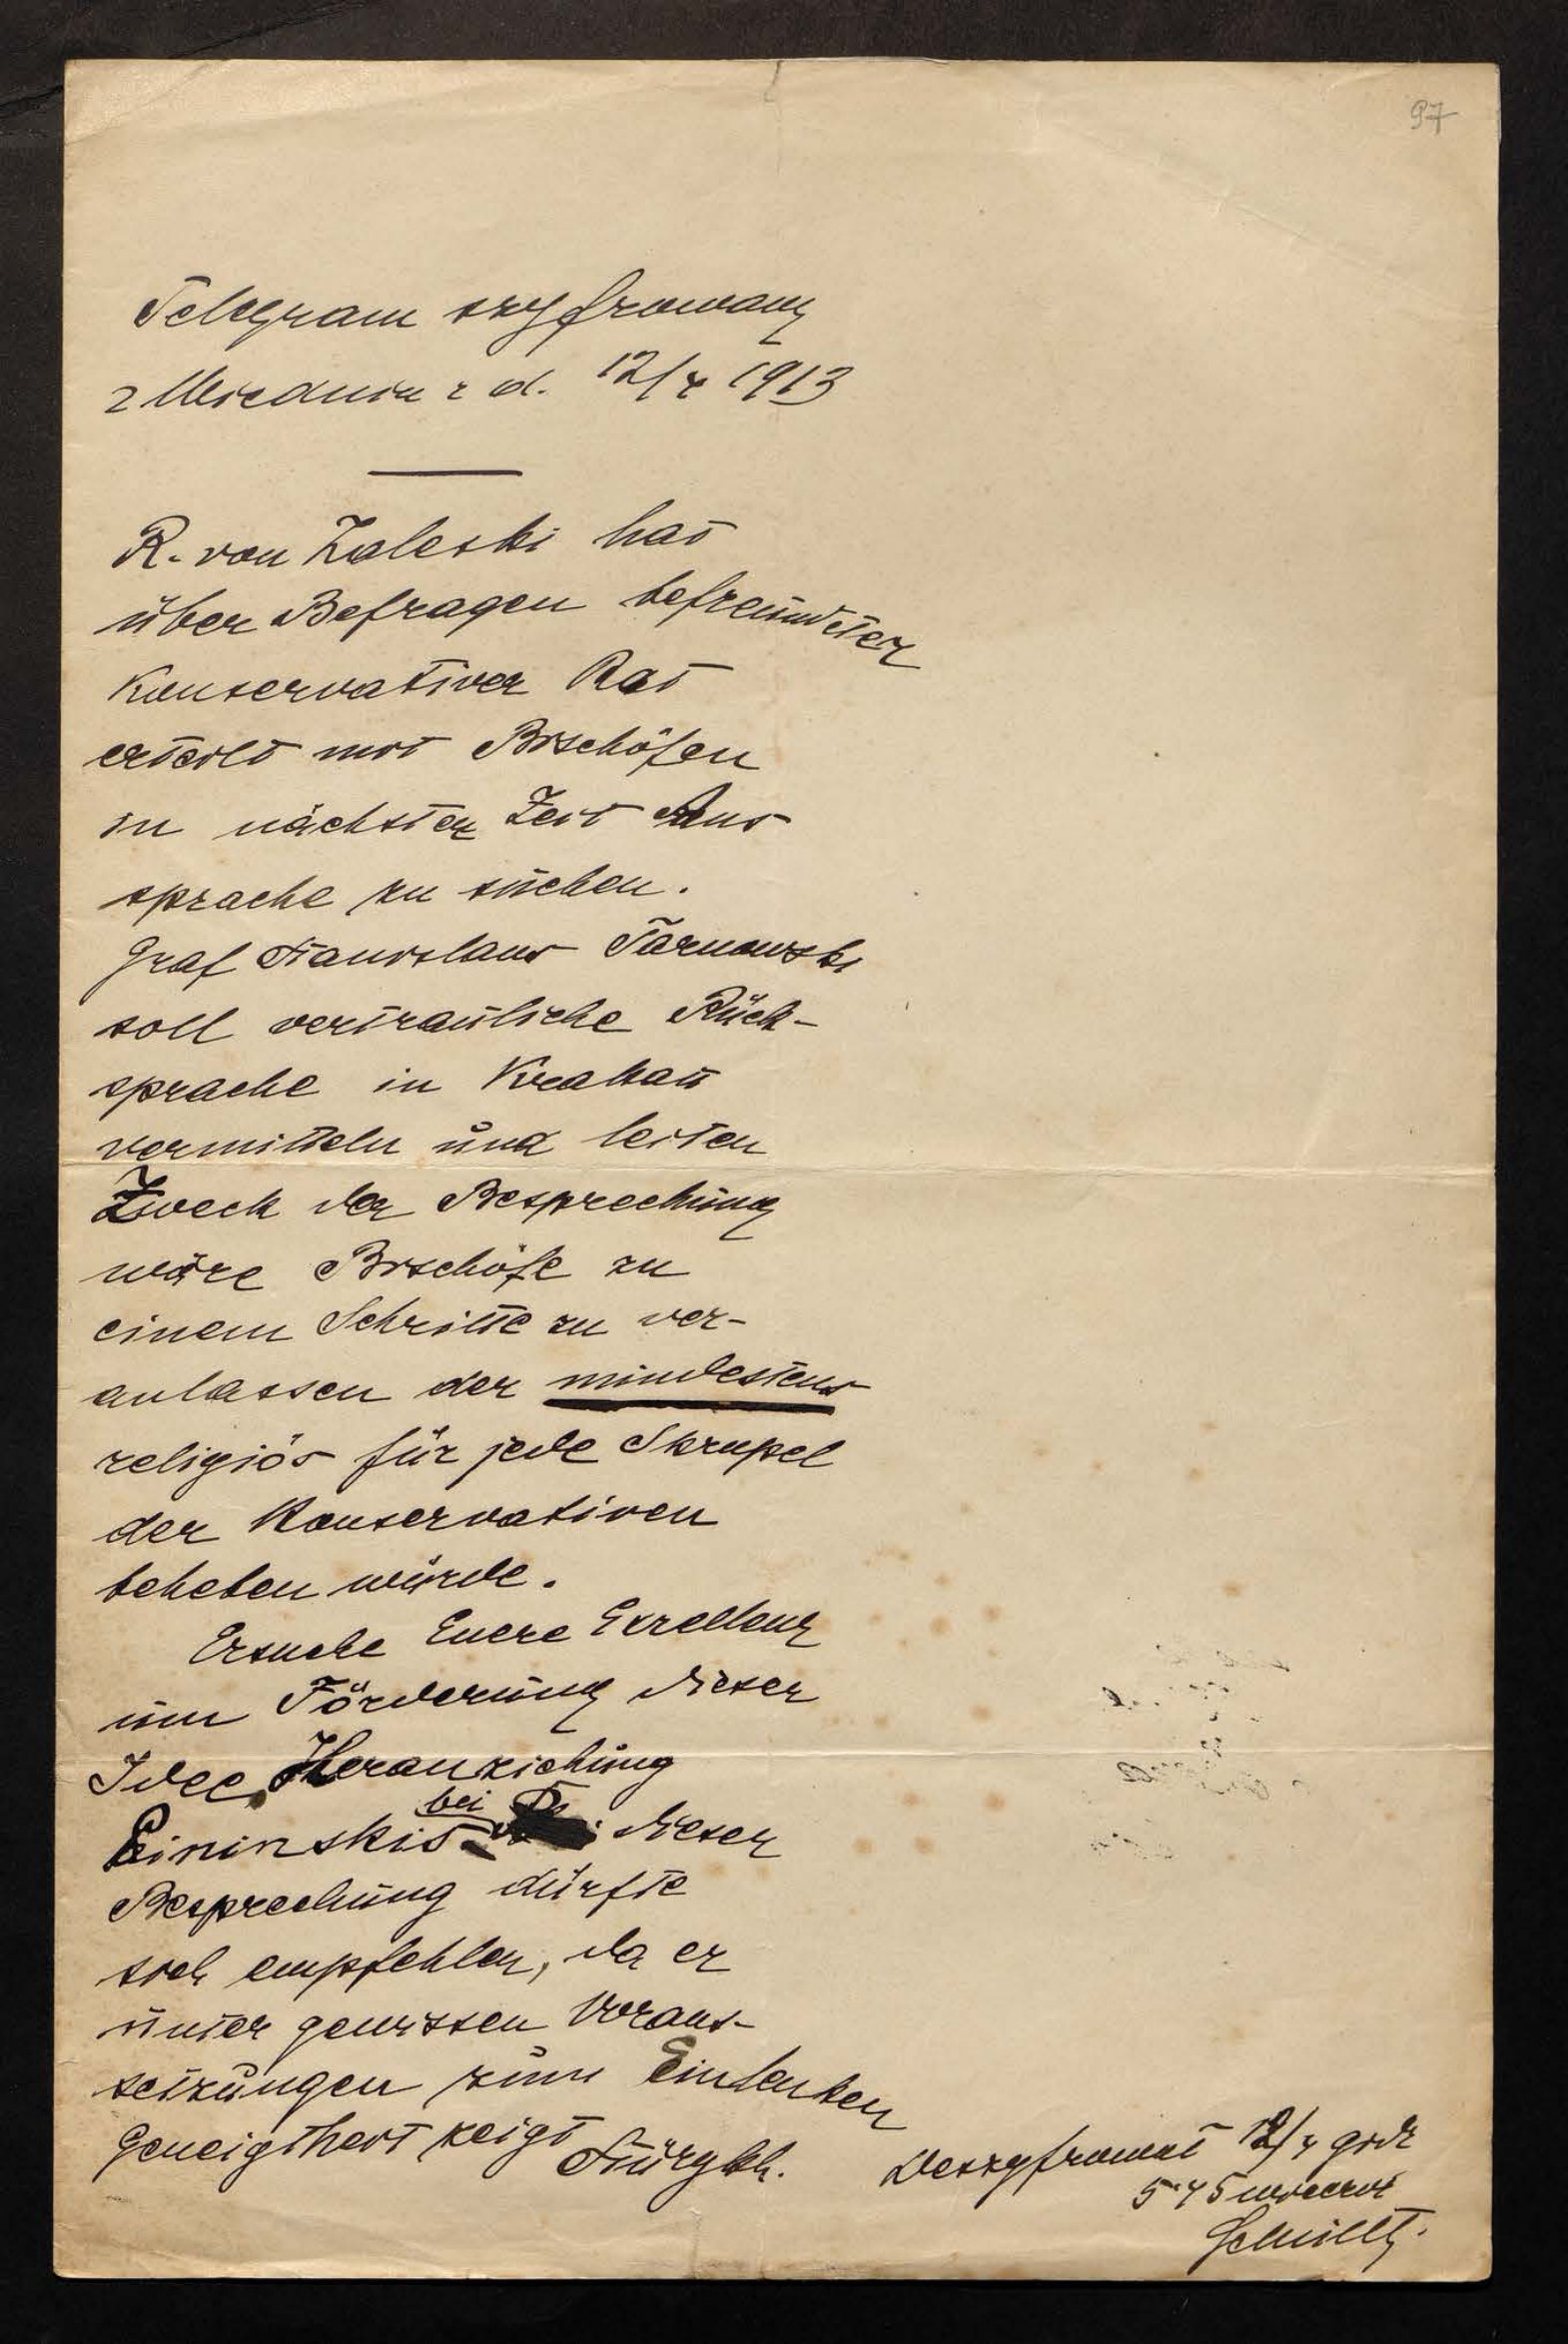 97
Telegram szyfrowany
z Wiednia z d. 12/4 1913
R. von Zaleski hat
über Befragen befreundeter
Konservativer Rat
erteilt mit Bischöfen
in nächster Zeit Aus
sprache zu suchen.
Graf Stanislaus Tarnowski
soll vertrauliche Rück-
sprache in Krakau
vermitteln und leiten
Zweck der Besprechung
wäre Bischöfe zu
einem Schritte zu ver-
anlassen der mindestens
religiös für jede Skrupel
der Konservativen
beheben würde.
Ersuche Euere Exzellenz
um Förderung dieser
Idee, Heranziehung
bei
Pininskis dieser
Besprechung dürfte
sich empfehlen, da er
unter gewissen Voraus-
setzungen zum Einlenken
Geneigtheit zeigt
Stürgkh.
Deszyfrował 12/4 godz
5.45 wieczór